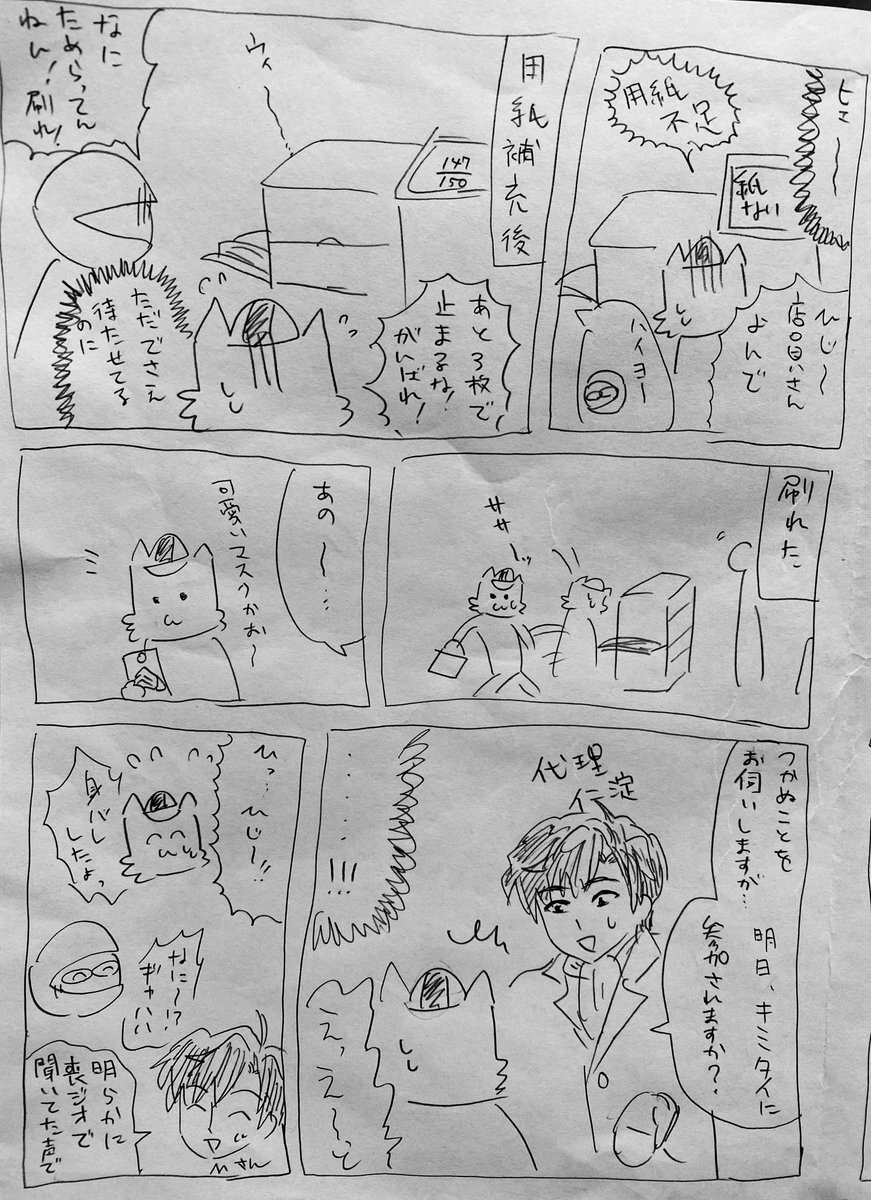 ヒェ〜〜
用紙
不足
紙
ない
ひじ〜
店員さん
よんで
ハイヨー
用紙補充後
147
150
ウィ〜〜
あと3枚で
止まるな!
がんばれ!
なに
ためらってん
ねん!刷れ!
ただでさえ
待たせてる
のに
刷れた
ササーッ
あの〜…
可愛いマスクかお〜
つかぬことを
お伺いしますが…
明日、キミタイに
参加されますか?
代理
仁淀
………!!!
えっえ〜っと
ひっ…ひじ〜!!
身バレ
したよっ
なに〜!?
ギャハハ
明らかに
喪ジオで
聞いてた声で
Mさん